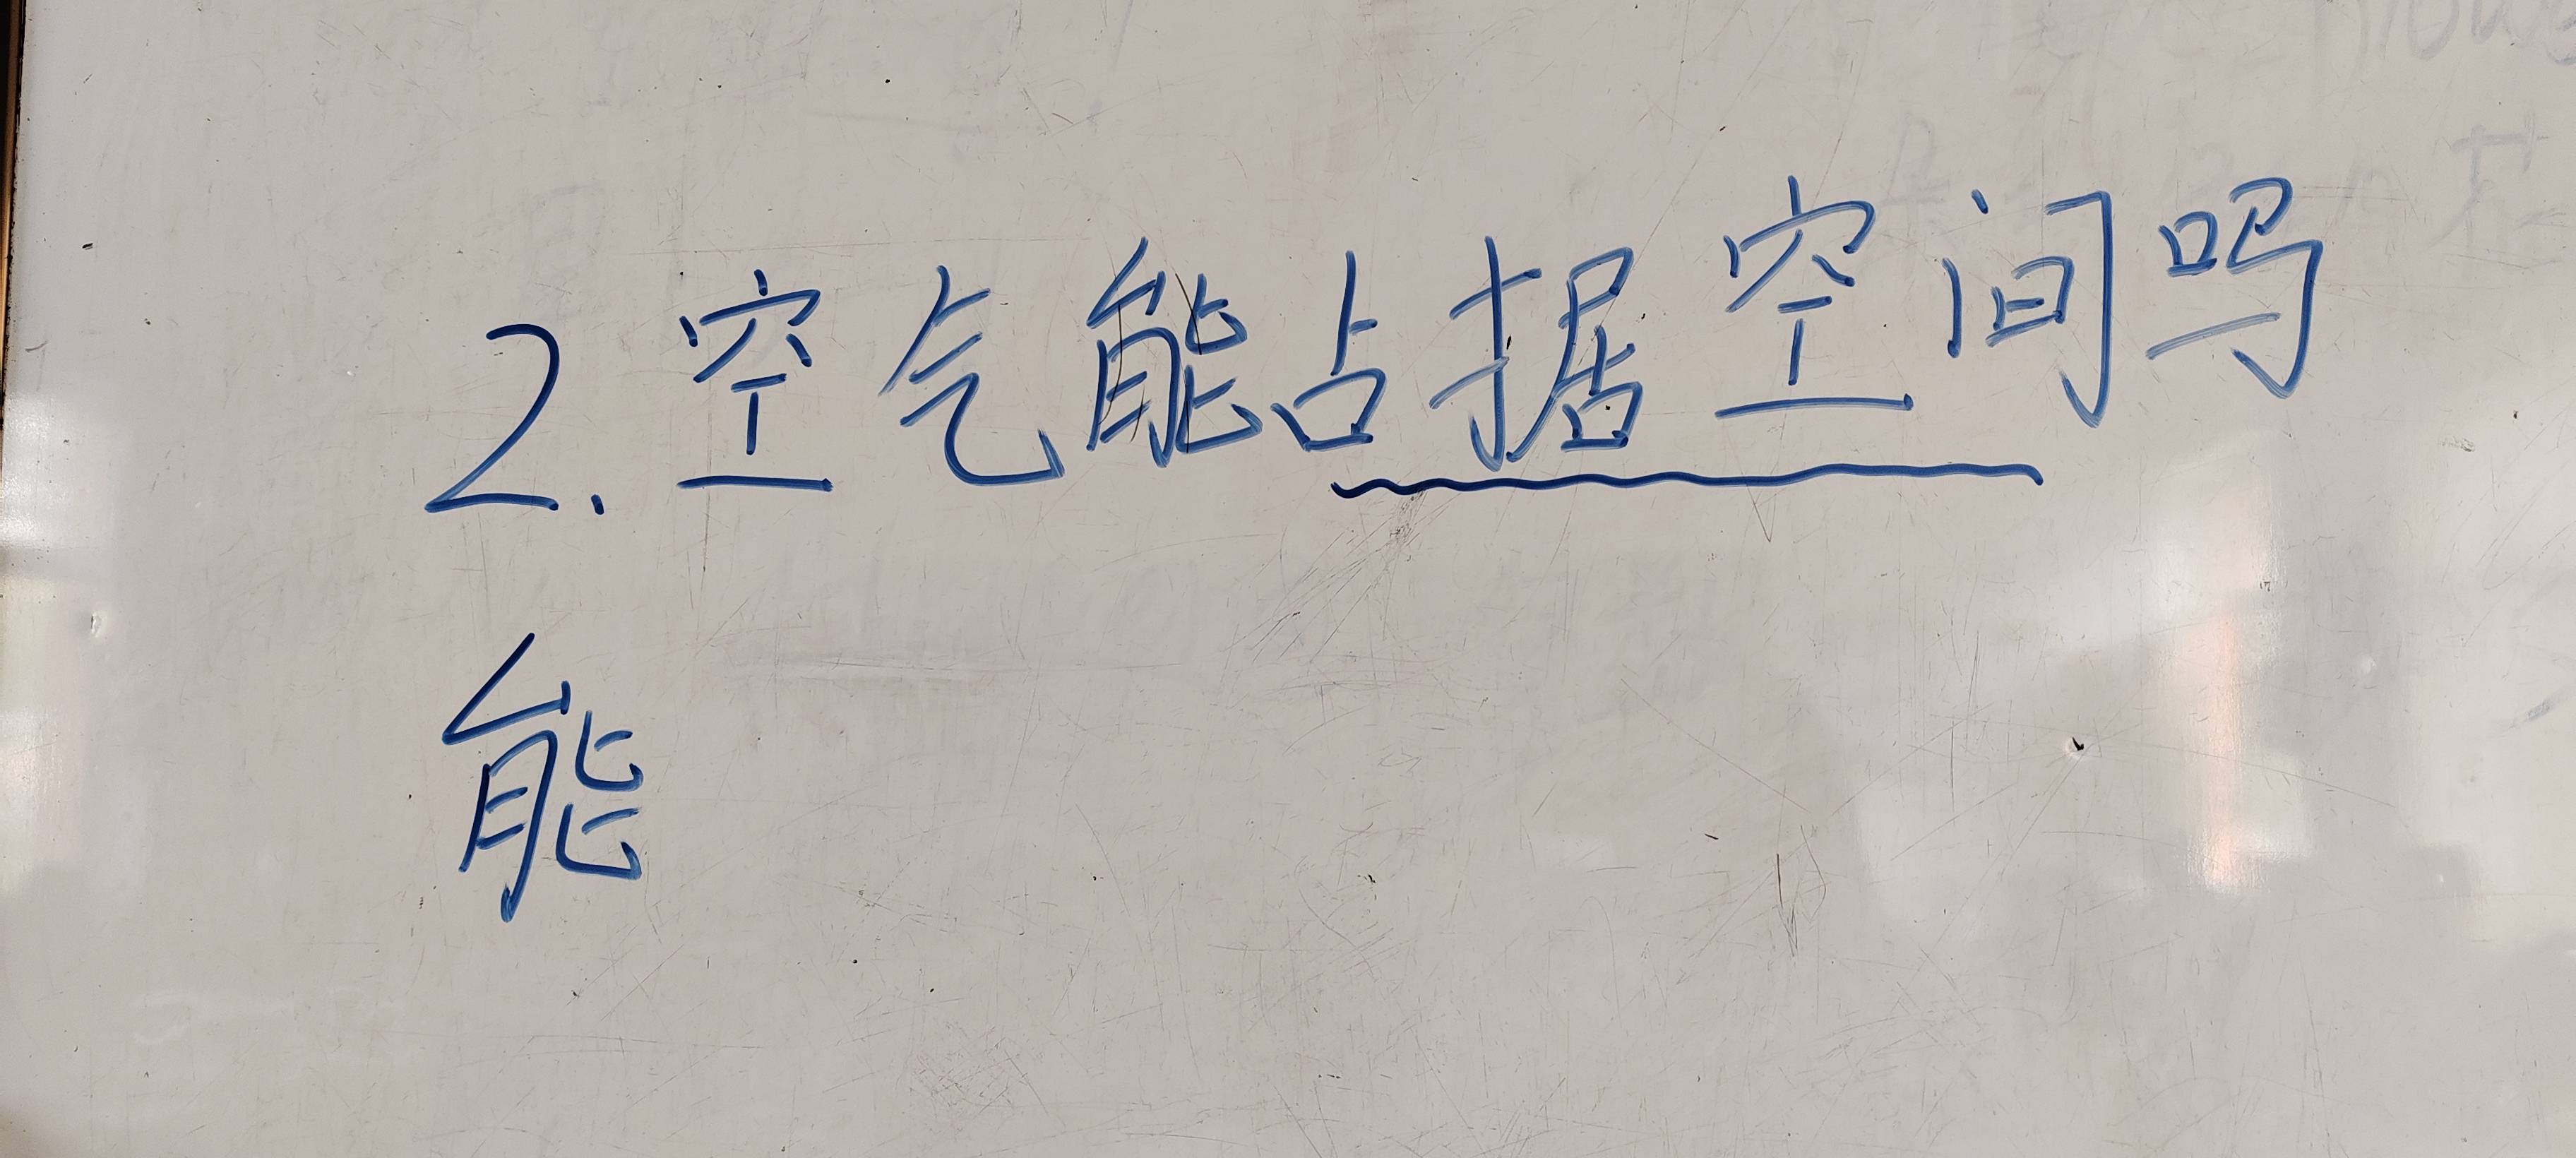 2.空气能占据空间吗
能